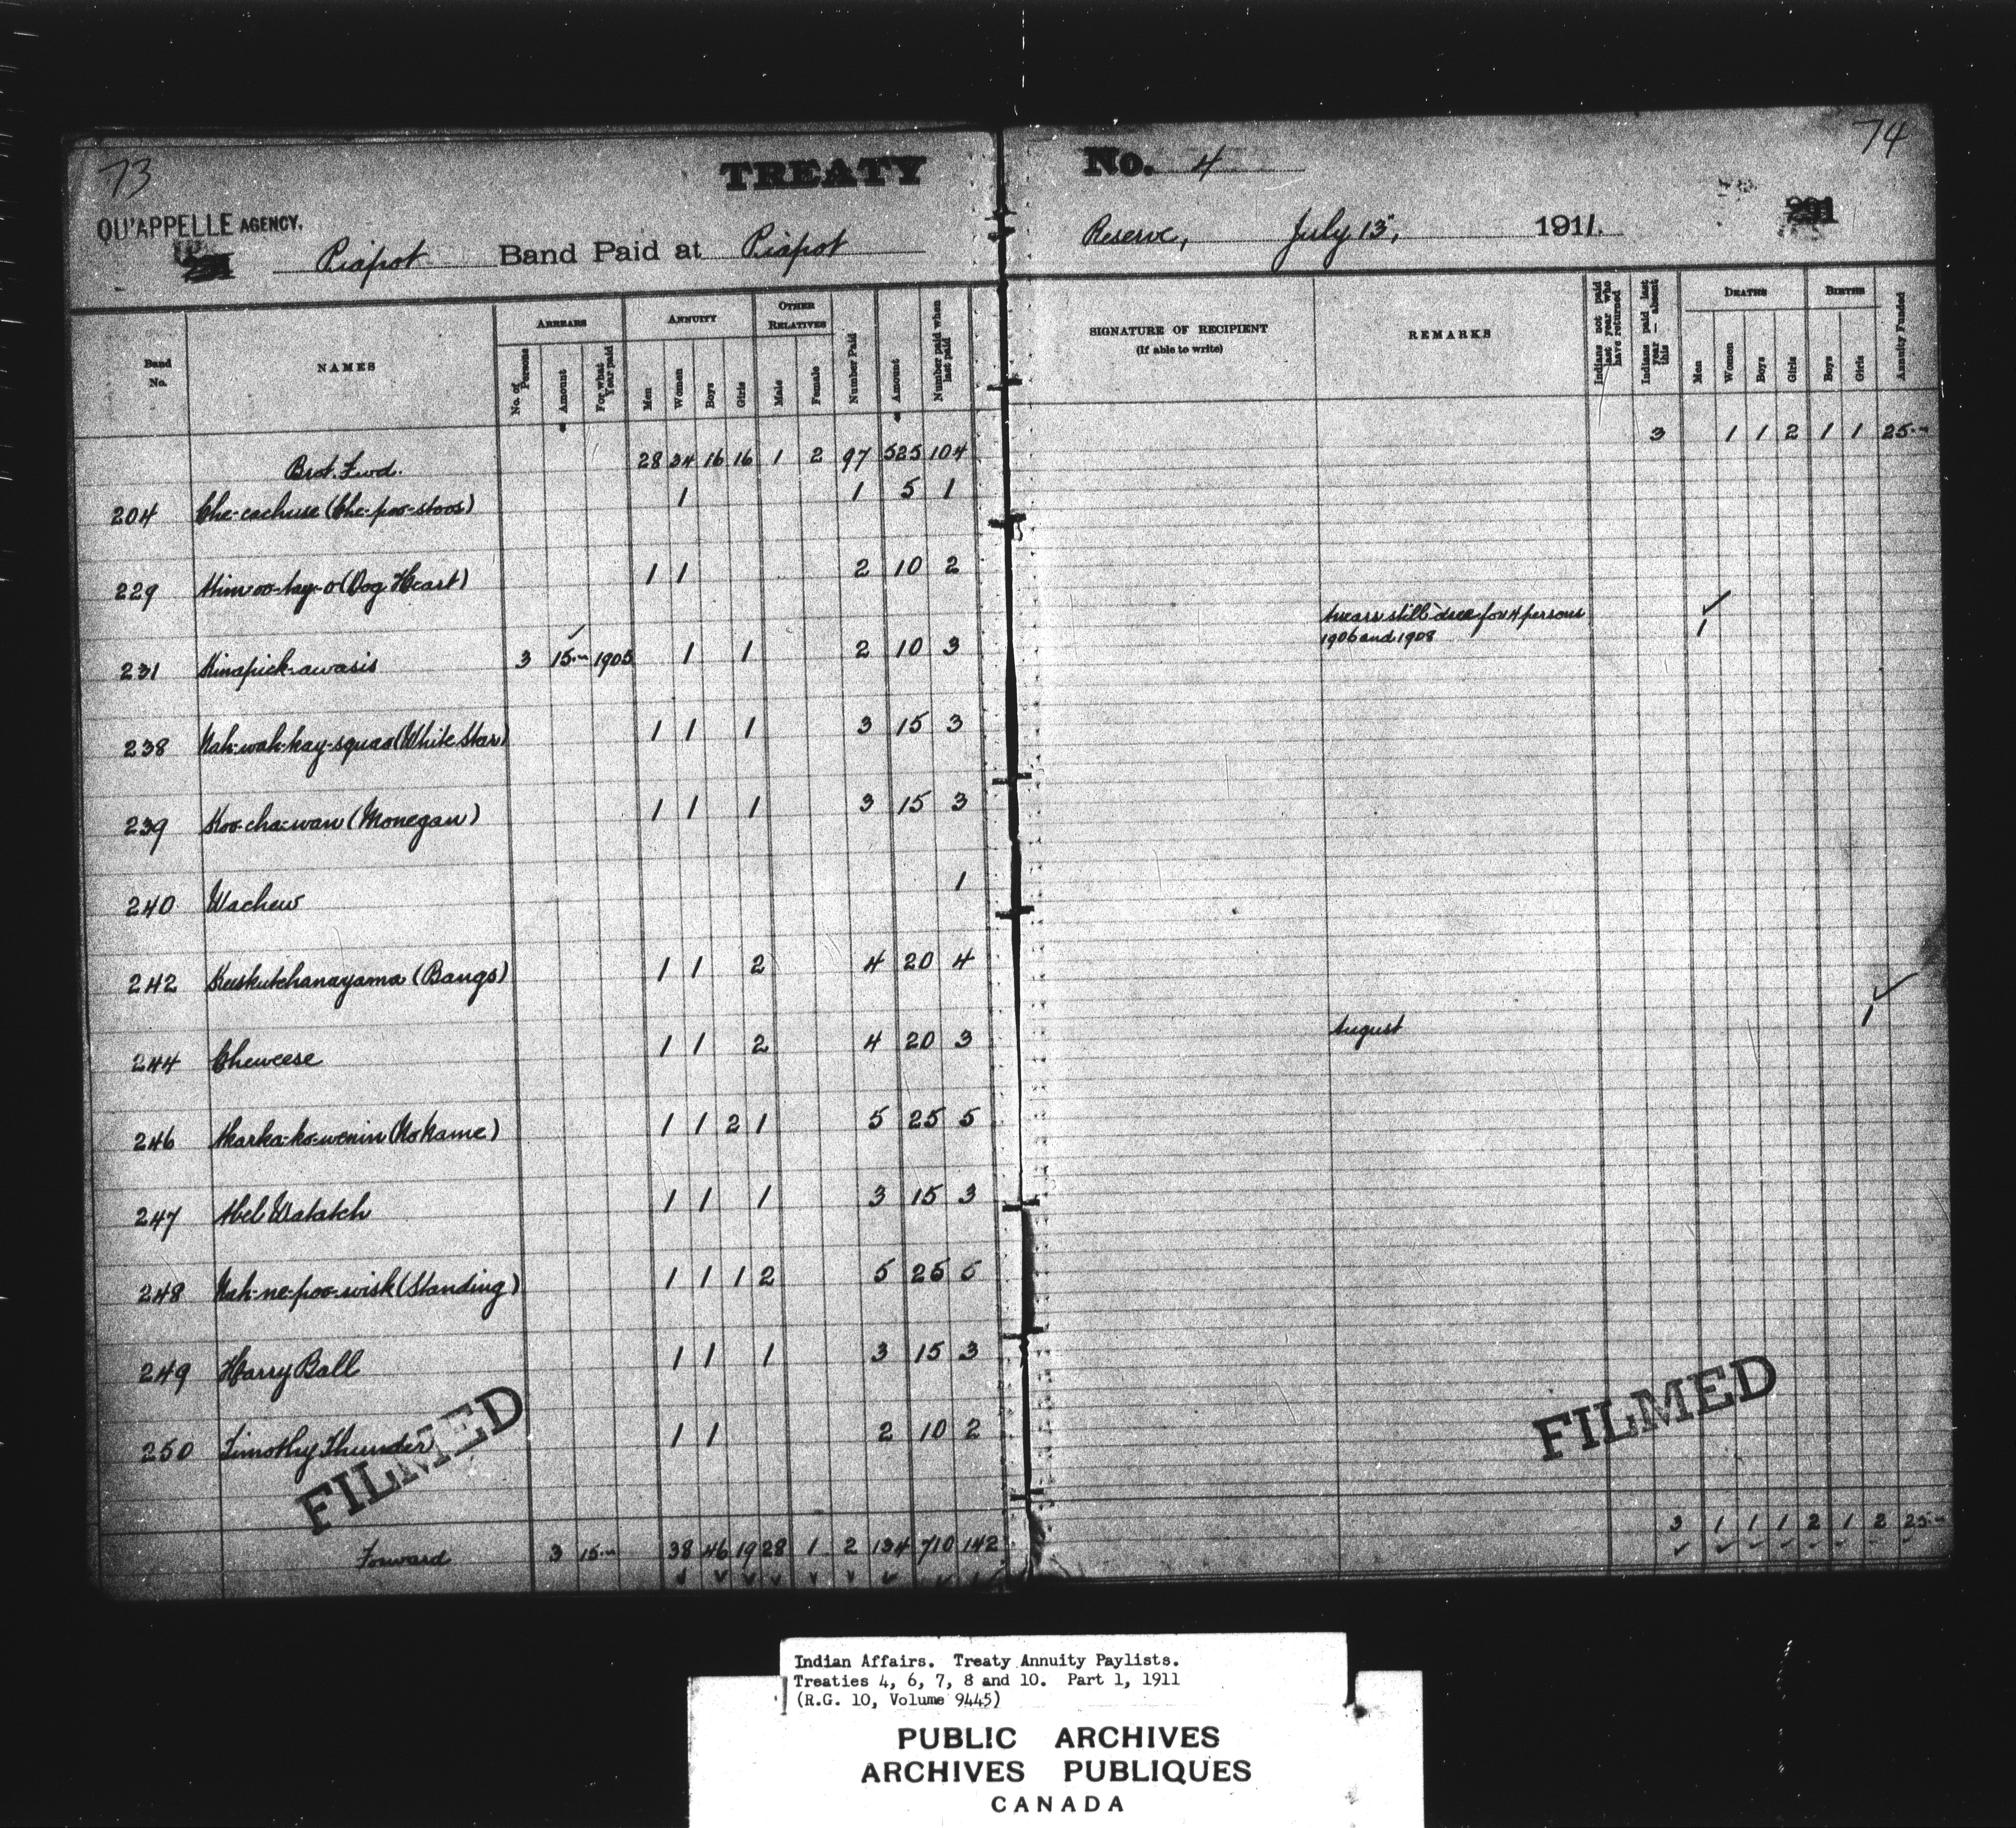 73
TREATY No. 4
74
QU'APPELLE AGENCY.
291
Piapot Band Paid at Piapot Reserve, July 13", 1911.
Band No. NAMES ARREARS ANNUITY OTHER RELATIVES Number Paid Amount Number paid when last paid SIGNATURE OF RECIPIENT (If able to write) REMARKS Indians not paid last year who have returned Indians paid last year — absent this DEATHS BIRTHS Annuity Funded
No. of Persons Amount For what Year paid Men Women Boys Girls Male Female Men Women Boys Girls Boys Girls
Brot. Fwd. 28 34 16 16 1 2 97 525 104 3 1 1 2 1 1 25.—
204 Che-cachuse (Che-poo-stoos) 1 1 5 1
229 (Dog Heart) 1 1 2 10 2
Arrears still due for 4 persons
1906 and 1908 1
231 Kinapick-awasis 3 15.— 1905 1 1 2 10 3
238 Nah-wah-kay-squao (White Star) 1 1 1 3 15 3
239 Koo-cha-wan (Monegan) 1 1 1 3 15 3
240 Wachew 1
242 Kuskutchanayama (Bangs) 1 1 2 4 20 4
244 Cheweese 1 1 2 4 20 3 August 1
246 Akarka-ko-wenin (No Name) 1 1 2 1 5 25 5
247 Abel Watatch 1 1 1 3 15 3
248 Nah-ne-poo-wisk (Standing) 1 1 1 2 5 25 5
249 Harry Ball 1 1 1 3 15 3
250 Timothy Thunder 1 1 2 10 2
FILMED
FILMED
Forward 3 15.— 38 46 19 28 1 2 134 710 142 3 1 1 1 2 1 2 25.—
Indian Affairs. Treaty Annuity Paylists.
Treaties 4, 6, 7, 8 and 10. Part 1, 1911
(R.G. 10, Volume 9445)
PUBLIC ARCHIVES
ARCHIVES PUBLIQUES
CANADA